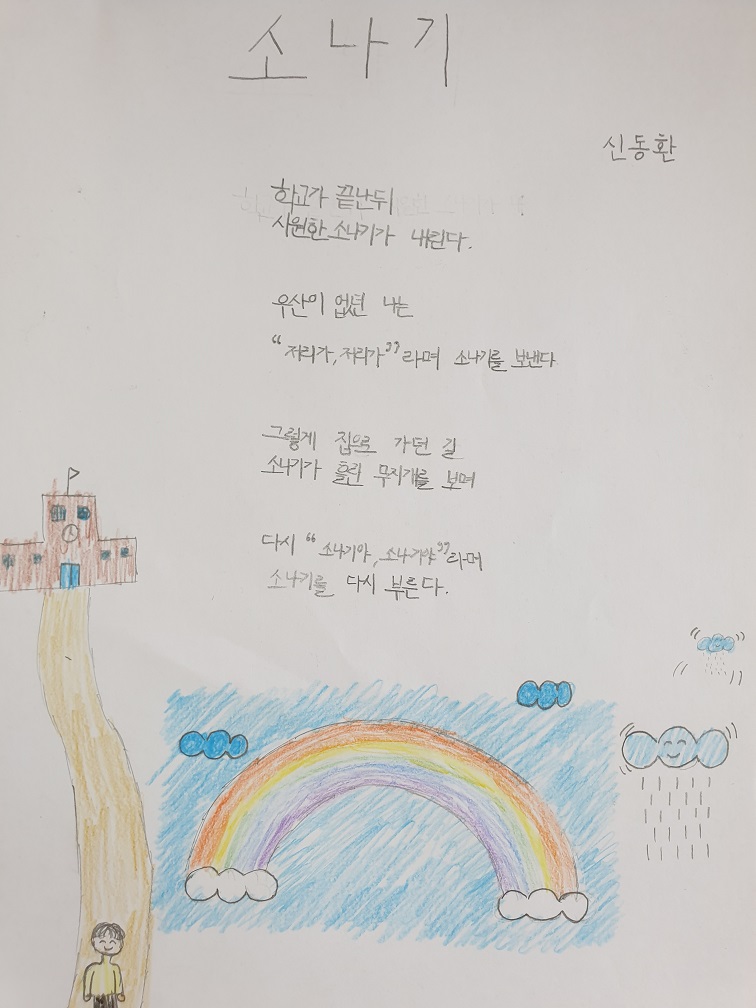 소나기
신동환
학교가 끝난뒤
시원한 소나기가 내린다.
우산이 없던 나는
“저리가, 저리가”라며 소나기를 보낸다
그렇게 집으로 가던 길
소나기가 흘린 무지개를 보며
다시 “소나기야, 소나기야”라며
소나기를 다시 부른다.